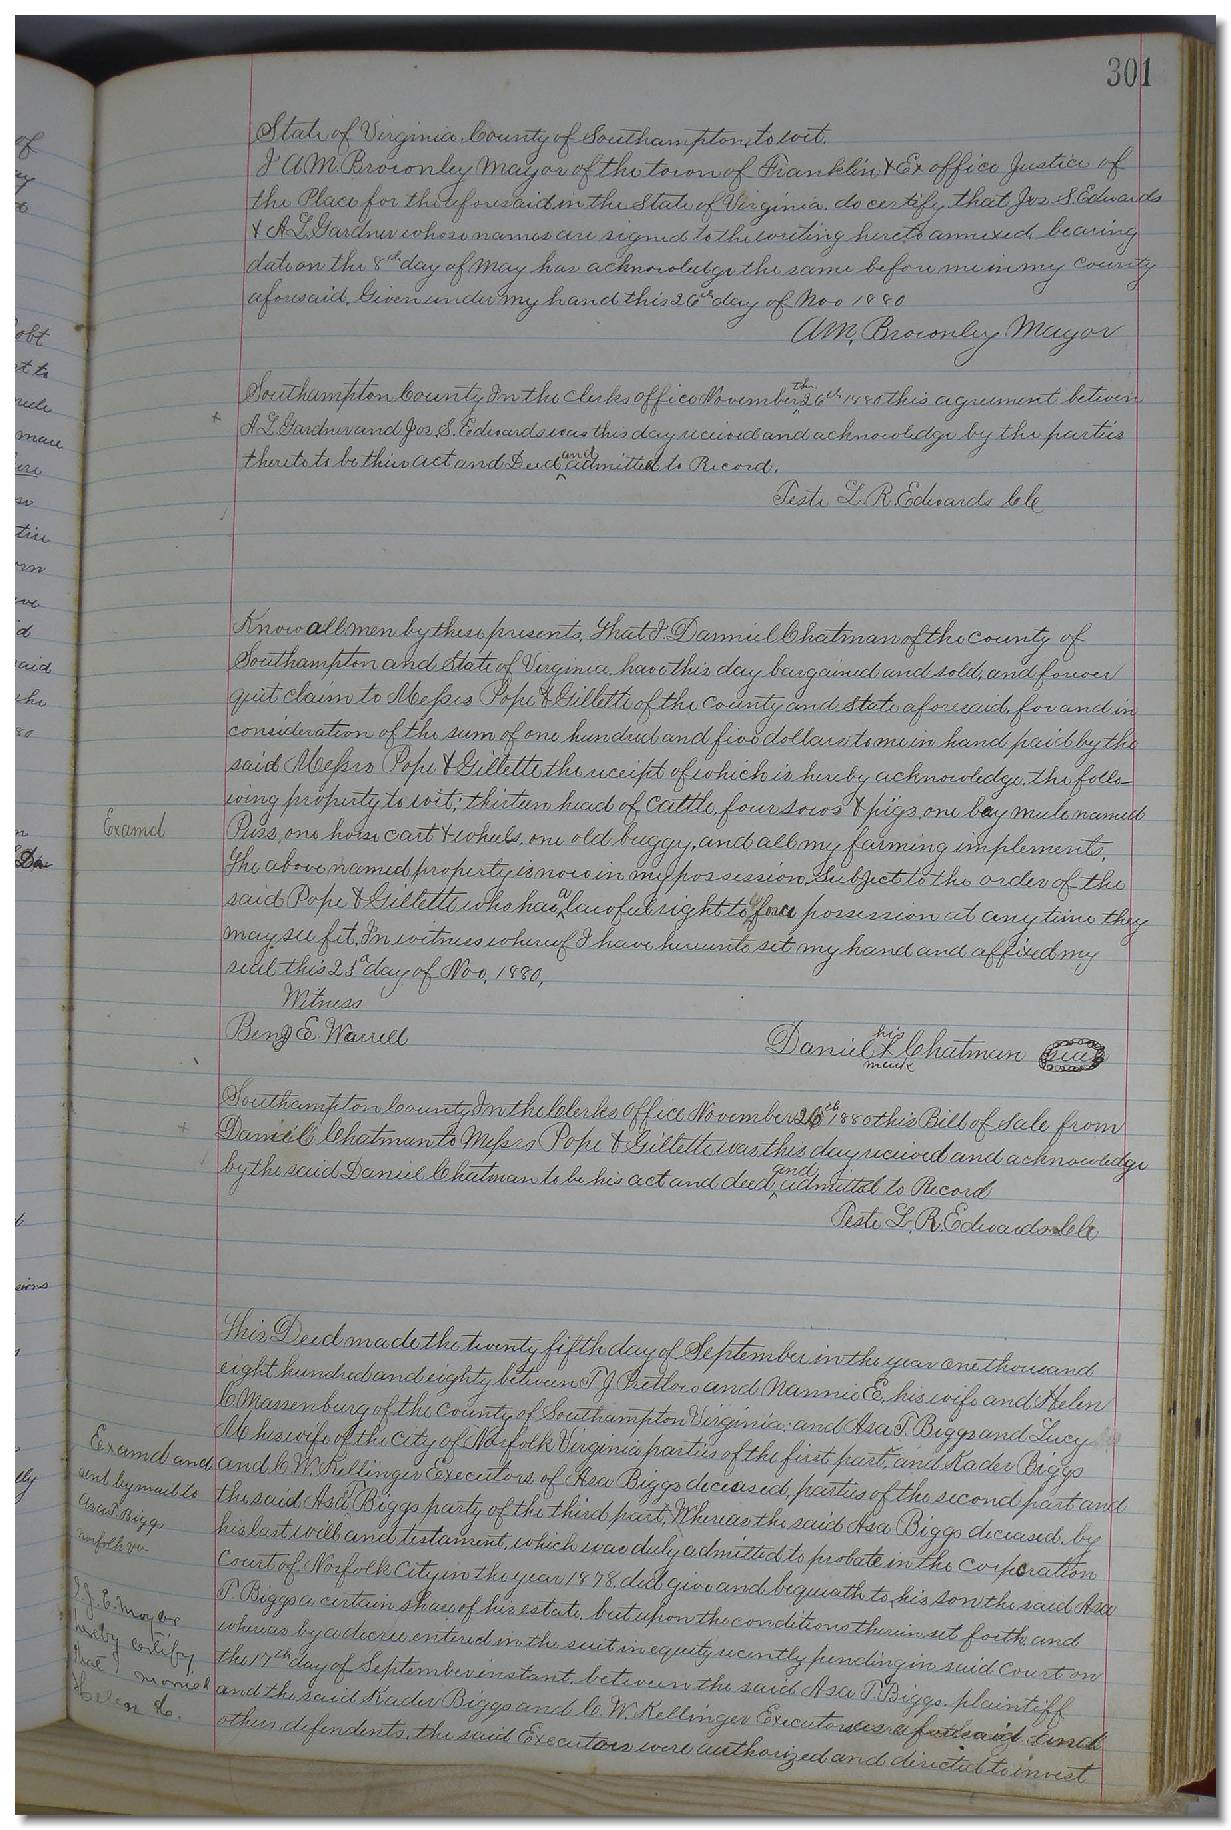 301
State of Virginia, County of Southampton, to wit.
I A.M. Brownley Mayor of the town of Franklin, & Ex office Justice of
the Place for the aforesaid in the State of Virginia. do certify that Jos. S. Edwards
& A L Gardner whose names are signed to the writing hereto annexed, bearing
date on the 8th day of May has acknowledge the same before me in my county
aforesaid, Given under my hand this 26th day of Nov 1880
A.M. Brownley Mayor
Southampton County In the Clerks office November the 26th 1880 this agrement betwen
A L Gardner and Jos. S. Edwards was this day received and acknowledge by the parties
thereto to be thier act and Deed and admitted to Record.
Teste L. R. Edwards C C
Know all men by these presents, That I, Danniel Chatman of the county of
Southampton and State of Virginia, have this day bargained and sold, and forever
quit claim to Messrs Pope & Gillette of the County and State aforesaid, for and in
consideration of the sum of one hundred and five dollars to me in hand paid by the
said Messrs Pope & Gillette the receipt of which is hereby acknowledge, the follo-
wing property to wit; thirteen head of cattle, four sows & pigs, one bay mule named
Puss, one horse cart & wheels, one old buggy, and all my farming implements,
Examd
The above named property is now in my possession, Subject to the order of the
said Pope & Gillette who has a lawful right to possession at any time they
may see fit, In witness whereof I have hereunto set my hand and affixed my
seal this 25th day of Nov. 1880,
Witness
Benj E. Warrell
Daniel his X mark Chatman seal
Southampton County, In the Clerks Office November 26th 1880 this Bill of Sale from
Daniel Chatman to Messrs Pope & Gillette was this day received and acknowledge
by the said Daniel Chatman to be his act and deed, and admitted to Record
Teste L. R. Edwards C C
This Deed made the twenty fifth day of September in the year one thousand
eight hundred and eighty between T. J. Pretlow and Nannie E. his wife and Helen
C Massenburg of the County of Southampton Virginia; and Asa T. Biggs and Lucy
M his wife of the City of Norfolk Virginia parties of the first part, and Kader Biggs
and C. W. Kellinger Executors of Asa Biggs deceased, parties of the second part and
the said Asa T. Biggs party of the third part, Whereas the said Asa Biggs deceased, by
his last will and testament, which was duly admitted to probate in the Corporation
Court of Norfolk City in the year 1878, did give and bequeath to, his son the said Asa
T. Biggs a certain share of his estate, but upon the conditions therein set forth, and
whereas by a decree entered in the suit in equity recently pending in said Court on
the 17th day of September instant, between the said Asa T. Biggs, plaintiff
and the said Kader Biggs and C. W. Kellinger Executors as aforesaid and
others, defendents, the said Executors were authorized and directed to invest
Examd and
sent by mail to
Asa T Biggs
Norfolk va
I, J. E. Moyler
hereby certify
that I
Helen C.